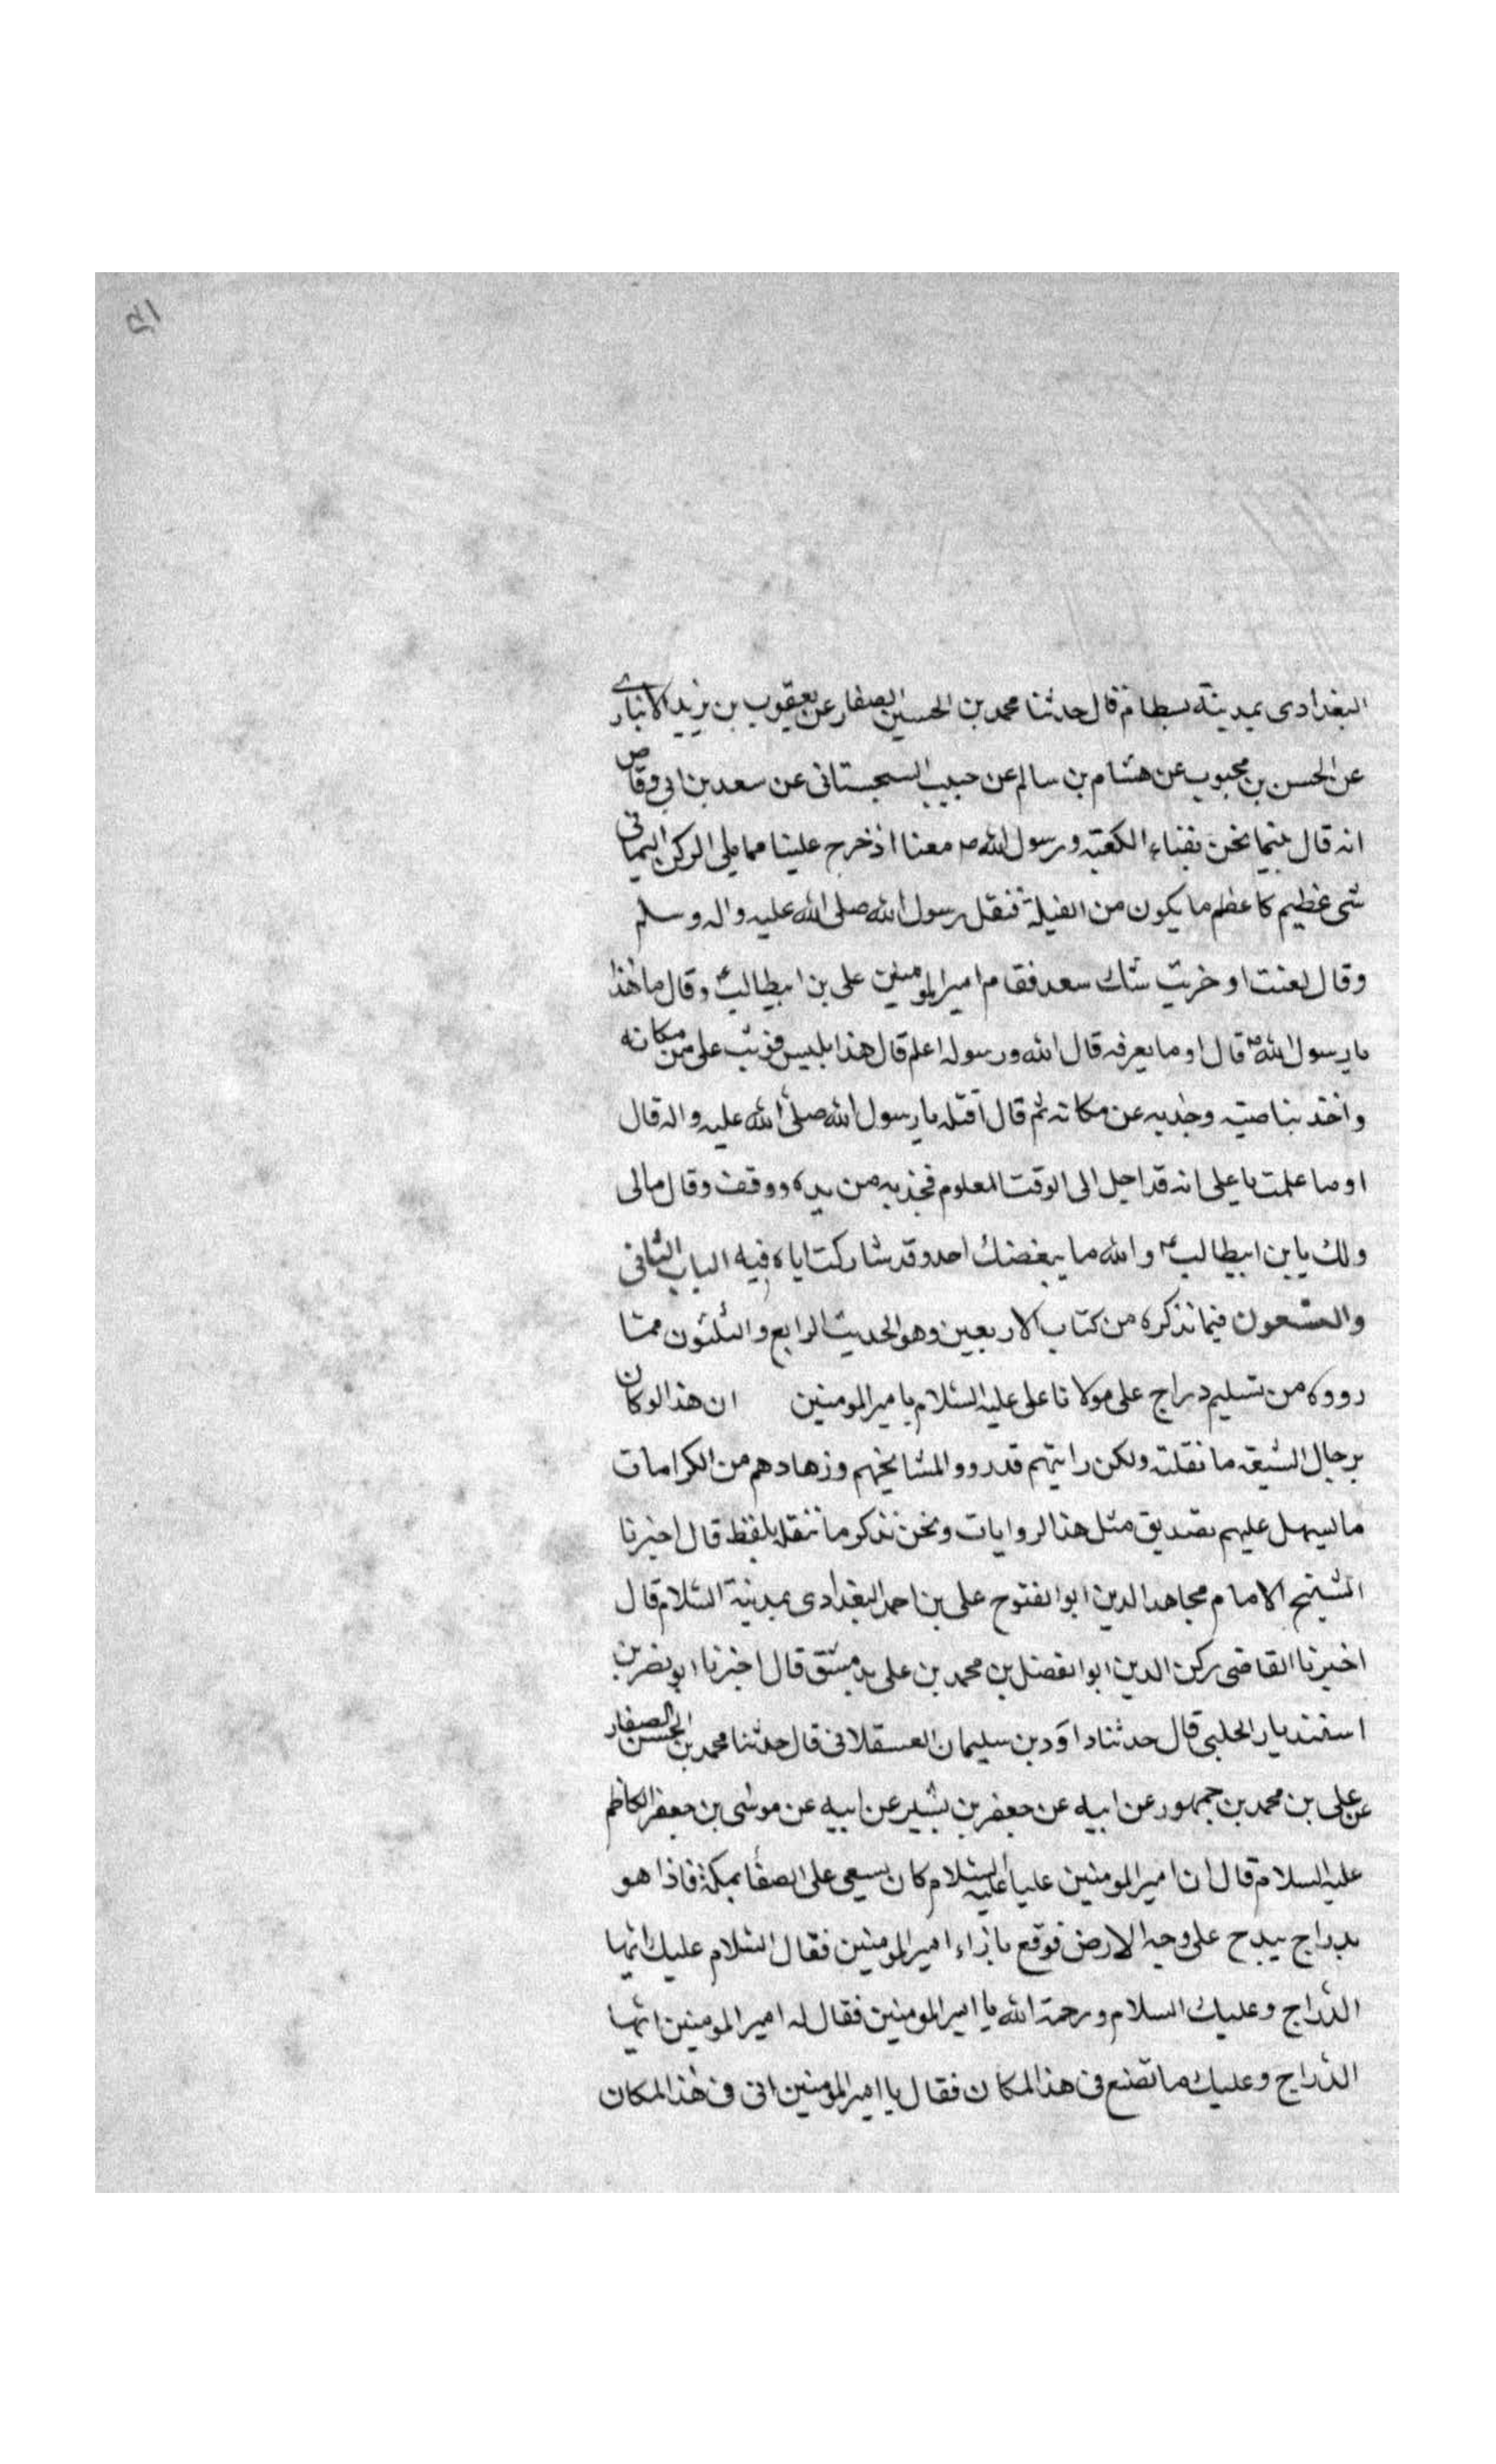 البغدادى بمدينة بسطام قال حدثنا محمد بن الحسين الصفار عن يعقوب بن يزيد الانبارے
عن الحسن بن محبوب عن هشام بن سالم عن حبيب السجستانى عن سعد بن ابى وقاص
انه قال بينما نحن بفناء الكعبة ورسول الله ص معنا اذ خرج علينا مما يلى الركن اليمانى
شى عظيم كاعظم ما يكون من الفيلة فتفل رسول الله صلى الله عليه واله وسلم
وقال لعنت او خزيت شك سعد فقام امير المومنين على بن ابيطالب ع وقال ما هذا
يا رسول الله ص قال اوما يعرفه قال الله ورسوله اعلم قال هذا ابليس فوثب على من مكانه
واخذ بناصيته وجذبه عن مكانه ثم قال اقتله يا رسول الله صلى الله عليه واله قال
اوما علمت يا على انه قد اجل الى الوقت المعلوم فجذبه من يده ووقف وقال مالى
ولك يا بن ابيطالب ع والله ما يبغضك احد وقد شاركت اياه فيه الباب الثانى
والتسعون فيما نذكره من كتاب الاربعين وهو الحديث الرابع والثلثون مما
رووه من تسليم دراج على مولانا على عليه السلام يا مير المومنين ان هذا لو كان
برجال الشيعة ما نقلته ولكن رايتهم قد رووا لمشايخهم وزهادهم من الكرامات
ما ليسهل عليهم تصديق مثل هذا لروايات ونحن نذكر ما ننقله بلفظه قال اخبرنا
الشيخ الامام مجاهد الدين ابوالفتوح على بن احمد البغدادى بمدينة السلام قال
اخبرنا القاضى ركن الدين ابوالفضل بن محمد بن على بدمشق قال اخبرنا ابونصر بن
اسفنديار الحلبى قال حدثنا داود بن سليمان العسقلانى قال حدثنا محمد بن الحسن الصفار
عن على بن محمد بن جمهور عن ابيه عن جعفر بن بشير عن ابيه عن موسى بن جعفر الكاظم
عليه السلام قال ان امير المومنين عليا عليه السلام كان يسعى على الصفا بمكة فاذا هو
بدراج يدرج على وجه الارض فوقع بازاء امير المومنين فقال السلام عليك ايها
الدراج وعليك السلام ورحمة الله يا امير المومنين فقال له امير المومنين ايها
الدراج وعليك ما تصنع فى هذا المكان فقال يا امير المومنين انى فى هذا المكان